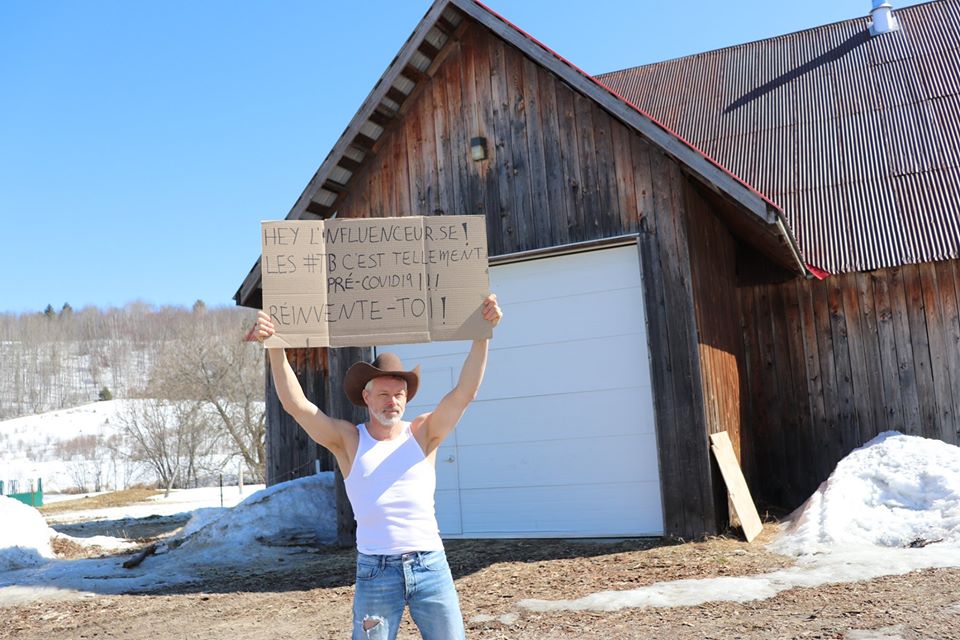 HEY L'INFLUENCEUR.SE!
LES #TB C'EST TELLEMENT
PRÉ-COVID19!!!
RÉINVENTE-TOI!